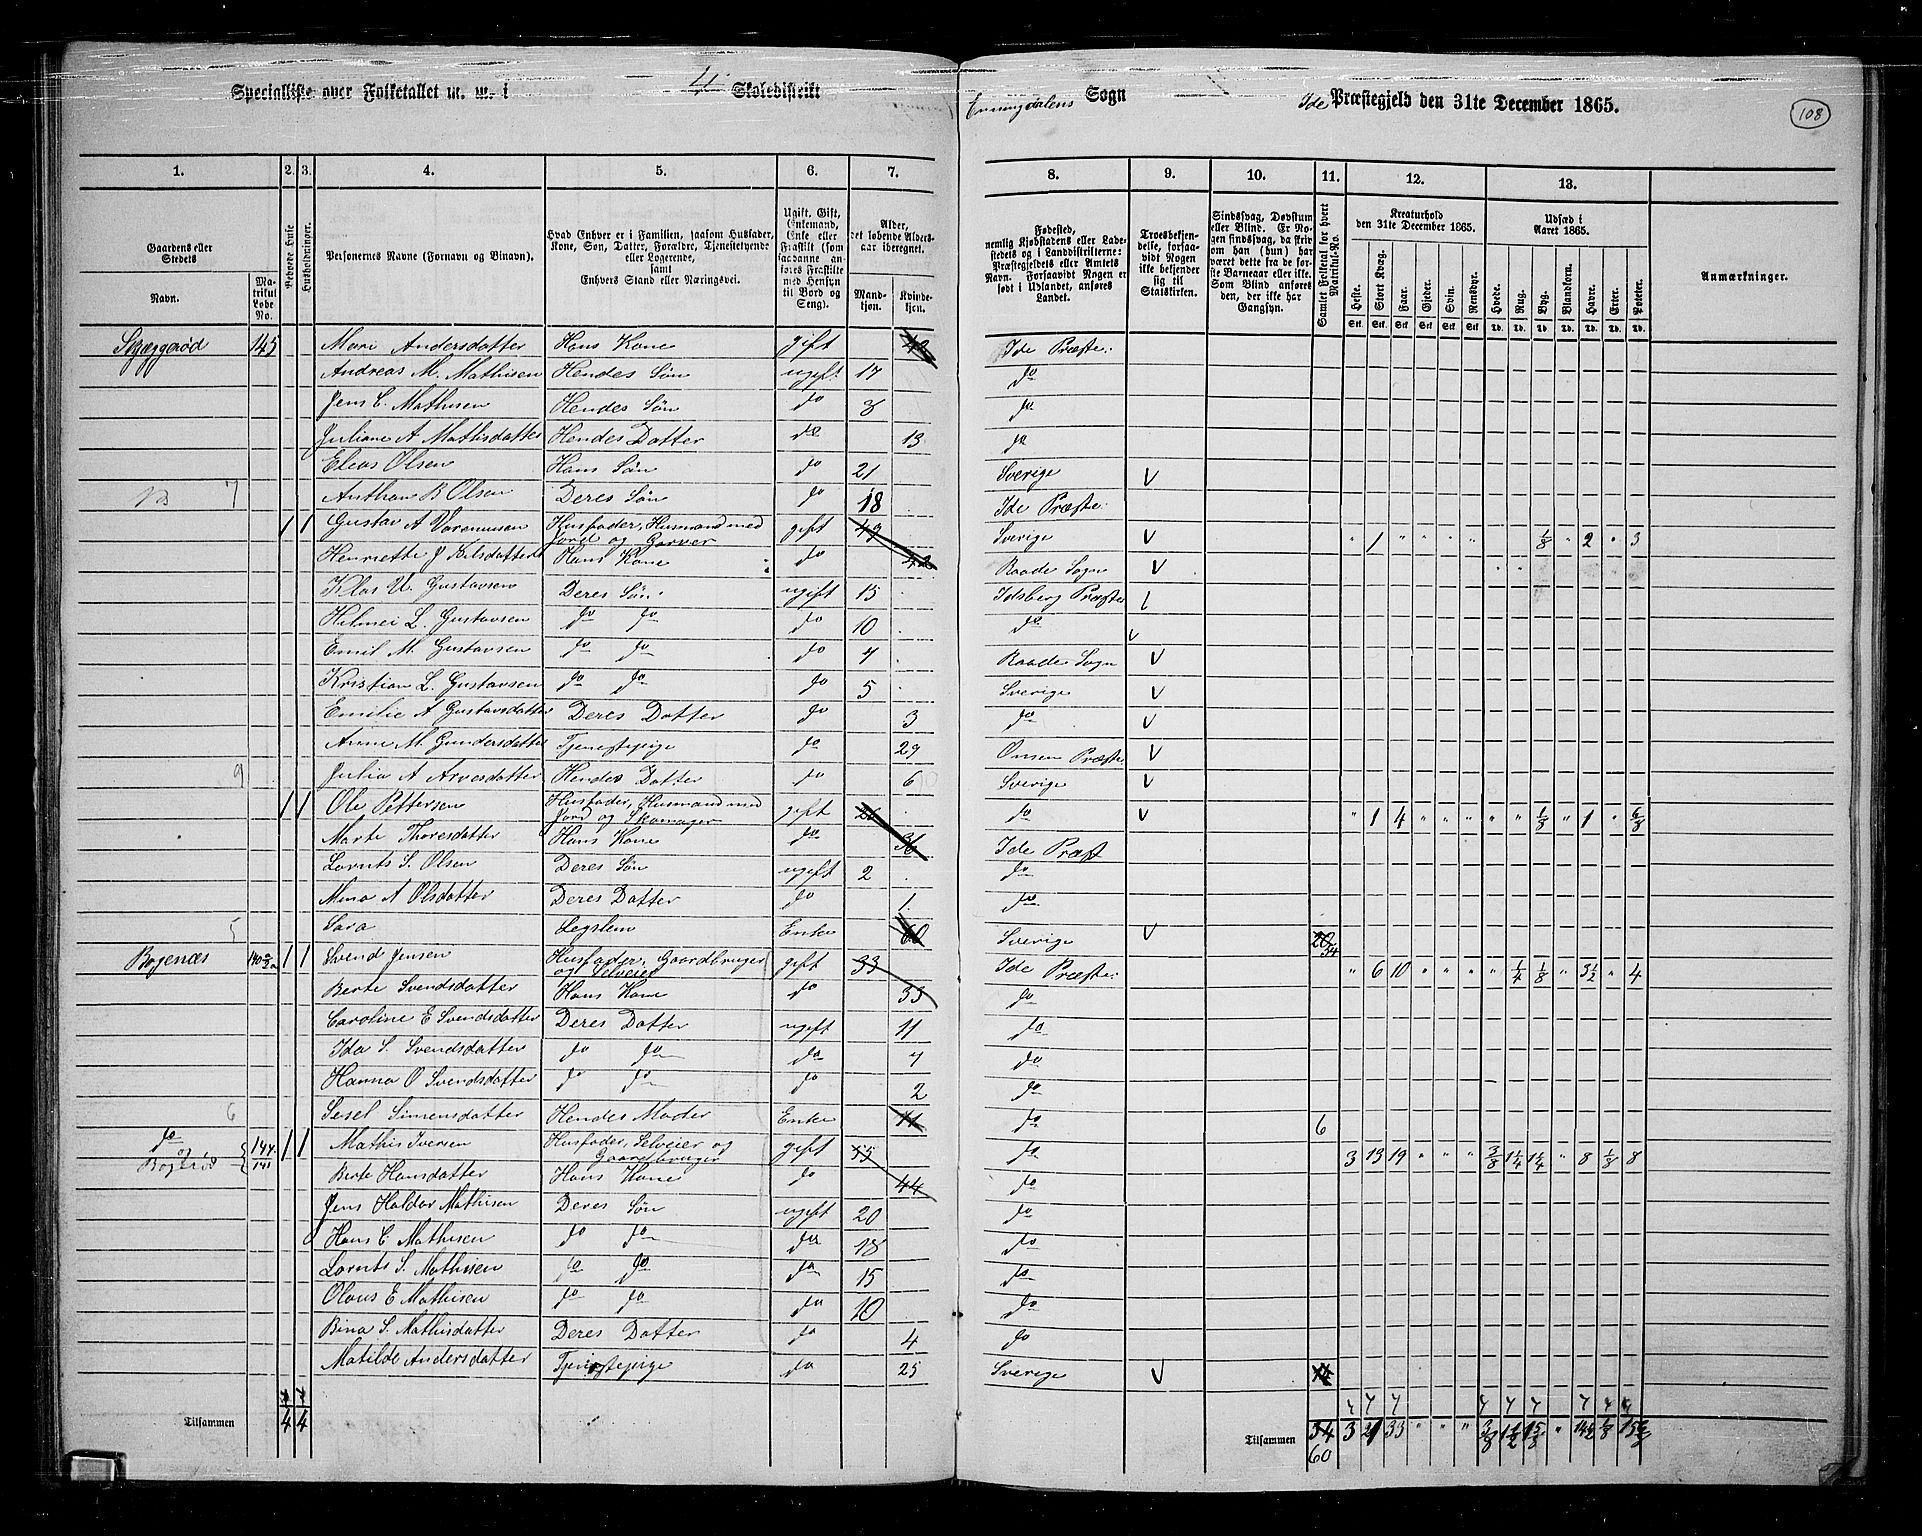 Specialliste over Folketallet m. m. i 4 Skoledistrikt Enningdalens Sogn Ide Præstegjeld den 31te December 1865.
108
1. 2. 3. 4. 5. 6. 7. 8. 9. 10. 11. 12. 13.
Gaardens eller Stedets
Navn.
Matrikul Løbe No.
Beboede Huse
Husholdninger.
Personernes Navne (Fornavn og Binavn).
Hvad Enhver er i Familien, saasom Husfader, Kone, Søn, Datter, Forældre, Tjenestetyende eller Logerende, samt Enhvers Stand eller Næringsvei.
Ugift, Gift, Enkemand, Enke eller Fraskilt (som saadanne anføres Fraskilte med Hensyn til Bord og Seng).
Alder, det løbende Alders-aar iberegnet.
Mandkjøn.
Kvindekjøn.
Fødested, nemlig Kjøbstadens eller Ladestedets og i Landdistrikterne: Præstegjeldets eller Amtets Navn. Forsaavidt Nogen er født i Udlandet, anføres Landet.
Troesbekjendelse, forsaavidt Nogen ikke bekjender sig til Statskirken.
Sindssvag, Døvstum eller Blind. Er Nogen sindssvag, da skriv om han (hun) har været dette fra de første Barneaar eller ikke. Som Blind anføres den, der ikke har Gangsyn.
Samlet Folketal for hvert Matrikul-No.
Kreaturhold den 31te December 1865.
Heste. Stort Kvæg. Faar. Gjeder. Svin. Rensdyr.
Udsæd i Aaret 1865.
Hvede. Rug. Byg. Blandkorn. Havre. Erter. Poteter.
Anmærkninger.
145 Mari Andersdatter Hans Kone gift Ide Præste:
Andreas M. Mathisen Hendes Søn ugift 17 do
Jens C. Mathisen Hendes Søn do 8 do
Juliane A Mathisdatter Hendes Datter do 13 do
Elias Olsen Hans Søn do 21 Sverige V
7 Anthon B Olsen Deres Søn do 18 Ide Præste:
1 1 Gustav A Husfader, Husmand med Jord og Garver gift 49 Sverige V " 1 " " " " 1/8 " 2 " 3
Henriette J Hans Kone do 42 Raade Sogn V
Klas U. Gustavsen Deres Søn ugift 15 Præste
L. Gustavsen do do do 10 do V
Emil M. Gustavsen do do do 7 Raade Sogn V
Kristian L. Gustavsen do do do 5 Sverige V
Emilie A Gustavsdatter Deres Datter do 3 do V
Anne M. Gundersdatter Tjenestepige do 29 Onsen Præste: V
9 Julia A Hendes Datter do 6 Sverige V
1 1 Ole Pettersen Husfader, Husmand med Jord og Skomager gift do V " 1 4 " " " " " 1/8 " 1 " 6/8
Marte Thoresdatter Hans Kone do 36 Ide Præst
Lornts S. Olsen Deres Søn ugift 2 do
Mina A Olsdatter Deres Datter do 1 do
5 Sara Legslem Enke 60 Sverige V 20 34
Bogenæs 1 1 Svend Jensen Husfader, Gaardbruger og Selveier gift 33 Ide Præste: " 6 10 " " " " 1/4 1/8 " 3 1/2 " 4
Berte Svendsdatter Hans Kone do 33 do
Caroline E Svendsdatter Deres Datter ugift 11 do
Ida S. Svendsdatter do do do 7 do
Hanna O Svendsdatter do do do 2 do
6 Sesel Simensdatter Hendes Moder Enke do 6
do og 144 141 1 1 Mathis Iversen Husfader, Selveier og Gaardbruger gift 55 do 3 13 19 " " " 3/8 1 1/4 1 1/4 " 8 1/8 8
Berte Hansdatter Hans Kone do 44 do
Jens Haldor Mathisen Deres Søn ugift 20 do
Hans C Mathisen do do do 18 do
Lornts S. Mathisen do do do 15 do
Olaus E Mathisen do do do 10 do
Bina S. Mathisdatter Deres Datter do 4 do
Matilde Andersdatter Tjenestepige do 25 Sverige V
Tilsammen 4 4
Tilsammen 34 60 3 21 33 " " " 3/8 1 1/2